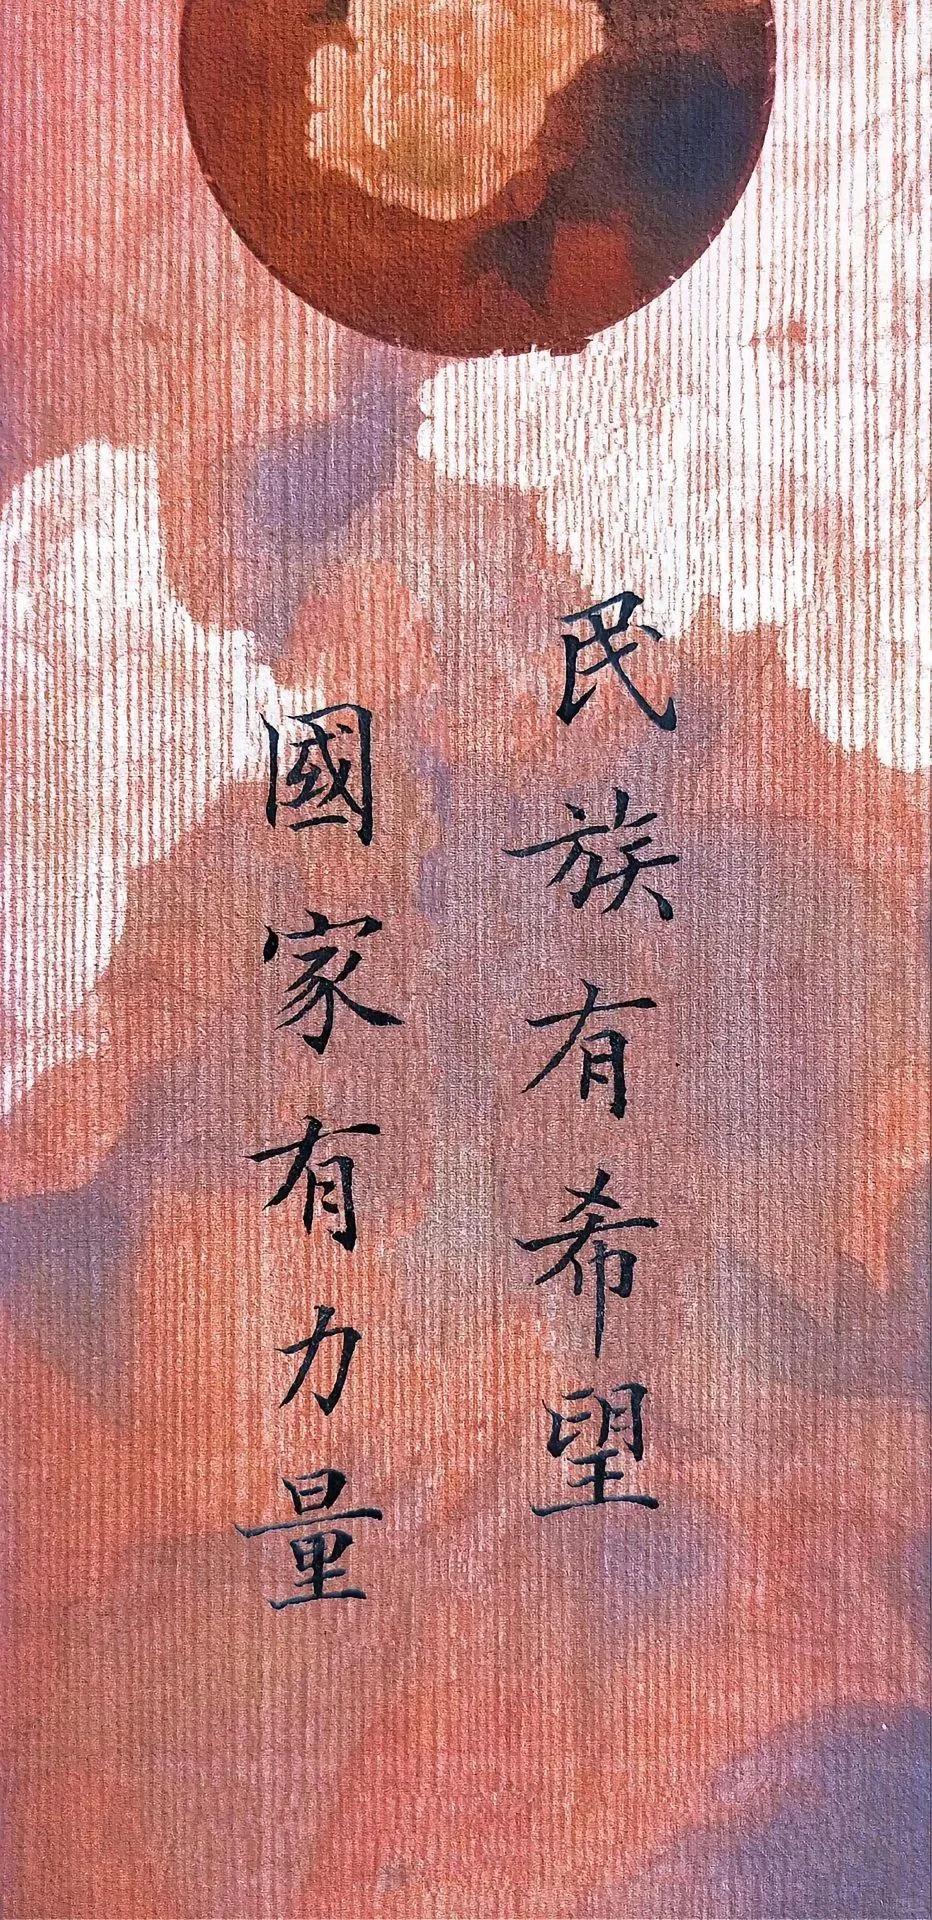 民族有希望
國家有力量